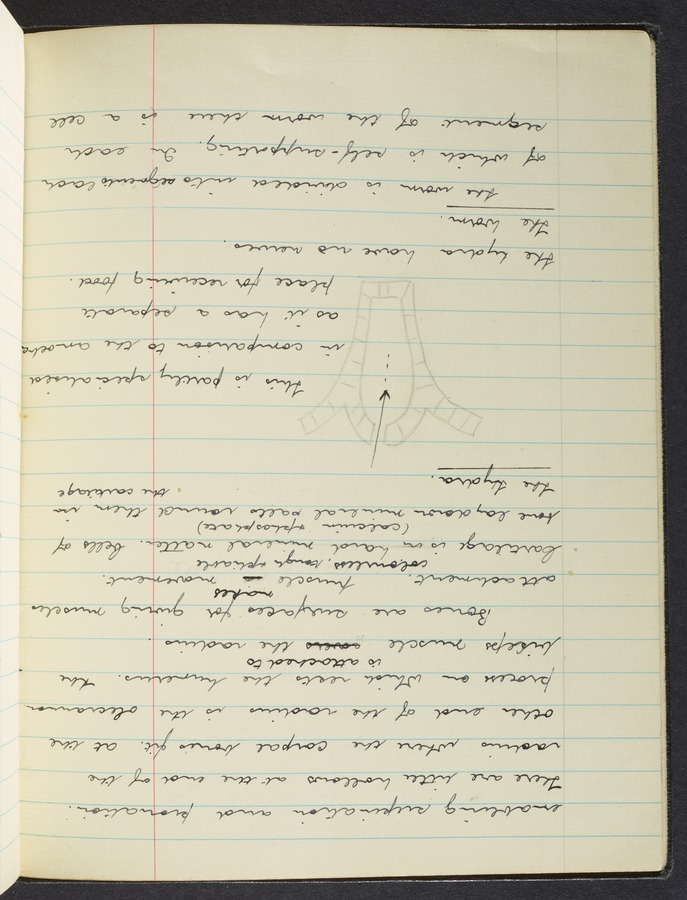 enabling supination and pronation.
there are little hollows at the end of the
radius where the carpal bones fit. at the
other end of the radius is the olecrannon
process on which rests the humerus. the
biseps muscle covers is attached to the radius.
Bones are surfaces for giving muscles
attachment. muscle = makes movement.
colourless, tough & pliable
Cartilage is in hard mineral matter. Cells of
(calcium & phosphate)
bone lay down mineral salts round them in
the cartilage
the Hydra.
this is partly specialised
in comparison to the amoeba
as it has a separate
place for receiving food.
the hydra have no nerves.
the worm.
the worm is divided into segments each
of which is self-supporting. In each
segment of the worm there is a cell